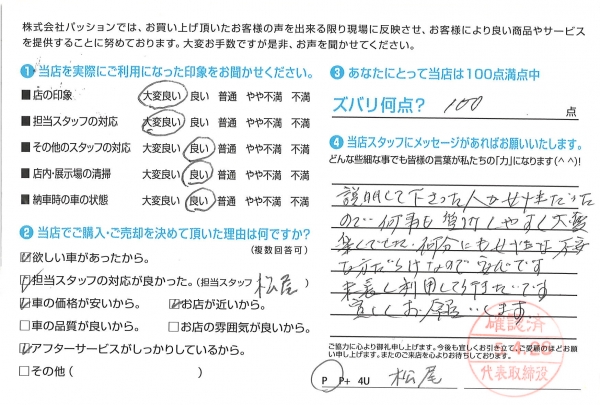 株式会社パッションでは、お買い上げ頂いたお客様の声を出来る限り現場に反映させ、お客様により良い商品やサービス
を提供することに努めております。大変お手数ですが是非、お声を聞かせてください。
1 当店を実際にご利用になった印象をお聞かせください。
■店の印象 大変良い 良い 普通 やや不満 不満
■担当スタッフの対応 大変良い 良い 普通 やや不満 不満
■その他のスタッフの対応 大変良い 良い 普通 やや不満 不満
■店内・展示場の清掃 大変良い 良い 普通 やや不満 不満
■納車時の車の状態 大変良い 良い 普通 やや不満 不満
2 当店でご購入・ご売却を決めて頂いた理由は何ですか?
(複数回答可)
☑欲しい車があったから。
☑担当スタッフの対応が良かった。(担当スタッフ 松尾)
☑車の価格が安いから。 ☑お店が近いから。
□車の品質が良いから。 □お店の雰囲気が良いから。
☑アフターサービスがしっかりしているから。
□その他( )
3 あなたにとって当店は100点満点中
ズバリ何点? 100 点
4 当店スタッフにメッセージがあればお願いいたします。
どんな些細な事でも皆様の言葉が私たちの「力」になります(^^)!
説明して下さった人が女性だった
ので 何事も 聞けしやすく大変
楽しでした 何分にも
な方だらけなので 安心です
末長く利用して行きたいです
宜しくお願いします
ご協力に心より御礼申し上げます。今後も宜しくお引き立て、ご愛顧のほどお願
い申し上げます。またのご来店を心よりお待ちしております。
P P+ 4U 松尾
確認済
4.20
代表取締役